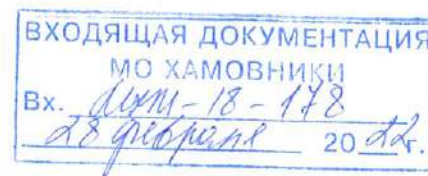 ВХОДЯЩАЯ ДОКУМЕНТАЦИЯ
МО ХАМОВНИКИ
Вх. -18-178
28 февраля 2022г.